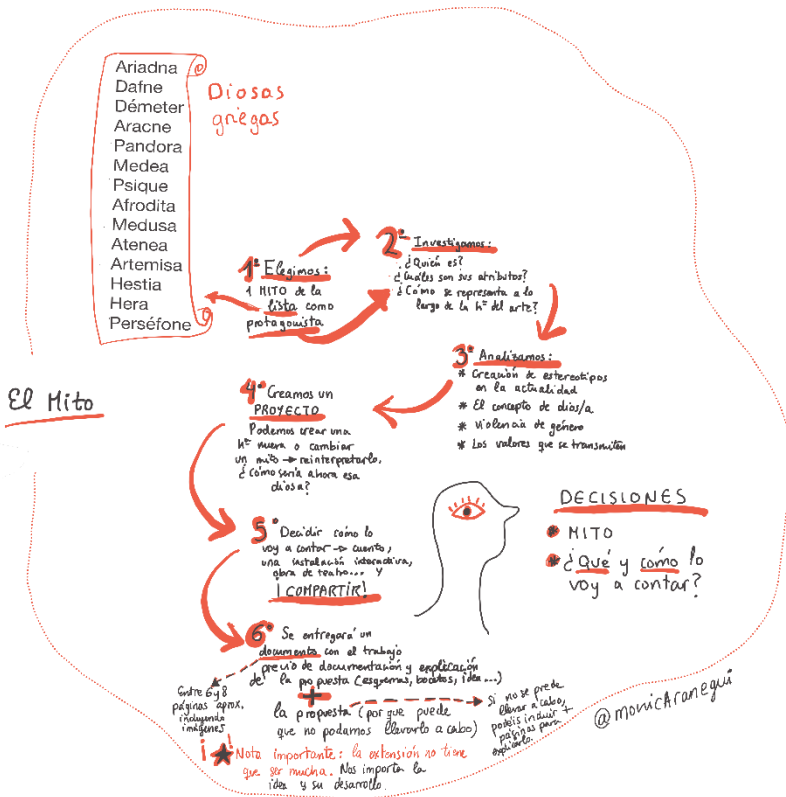 Ariadna
Dafne
Démeter
Aracne
Pandora
Medea
Psique
Afrodita
Medusa
Atenea
Artemisa
Hestia
Hera
Perséfone
Diosas
griegas
El Mito
1º Elegimos:
1 MITO de la
lista como
protagonista
2º Investigamos:
¿Quién es?
¿Cuáles son sus atributos?
¿Cómo se representa a lo
largo de la hª del arte?
3º Analizamos:
* Creación de estereotipos
en la actualidad
* El concepto de dios/a
* Violencia de género
* Los valores que se transmiten
4º Creamos un
PROYECTO
Podemos crear una
hª nueva o cambiar
un mito → reinterpretarlo.
¿Cómo sería ahora esa
diosa?
5º Decidir cómo lo
voy a contar → cuento,
una instalación interactiva,
obra de teatro... y
¡COMPARTIR!
6º Se entregará un
documento con el trabajo
previo de documentación y explicación
de la propuesta (esquemas, bocetos, idea...)
+
la propuesta (por que puede
que no podamos llevarlo a cabo)
Entre 6 y 8
páginas aprox.
incluyendo
imágenes
Si no se puede
llevar a cabo,
podéis incluir +
páginas para
explicarlo.
¡★! Nota importante: la extensión no tiene
que ser mucha. Nos importa la
idea y su desarrollo.
DECISIONES
* MITO
* ¿Qué y cómo lo
voy a contar?
@monicAranegui